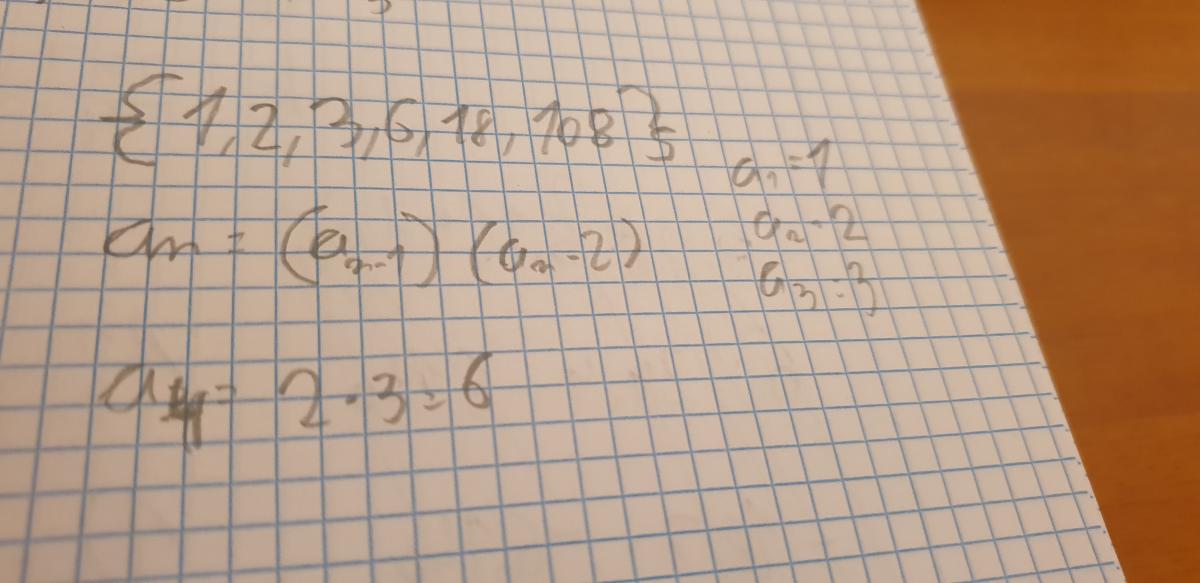 {1, 2, 3, 6, 18, 108}
a₁ = 1
aₙ = (aₙ₋₁) (aₙ - 2)
a₂ = 2
a₃ = 3
a₄ = 2 · 3 = 6